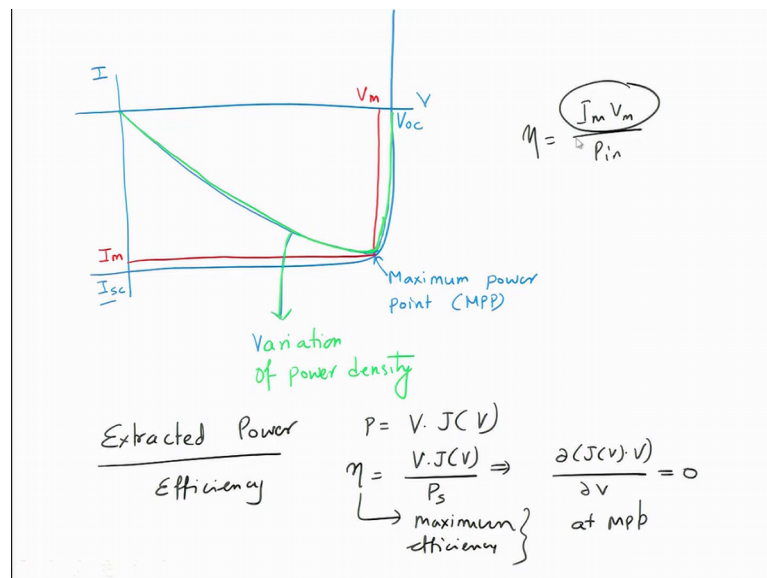 I
Vm
V
Voc
Im
Isc
Maximum power
point (MPP)
Variation
of power density
η = Im Vm / Pin
Extracted Power
Efficiency
P = V. J(V)
η = V.J(V) / Ps ⇒ ∂(J(V).V) / ∂V = 0
maximum
efficiency
at mpp